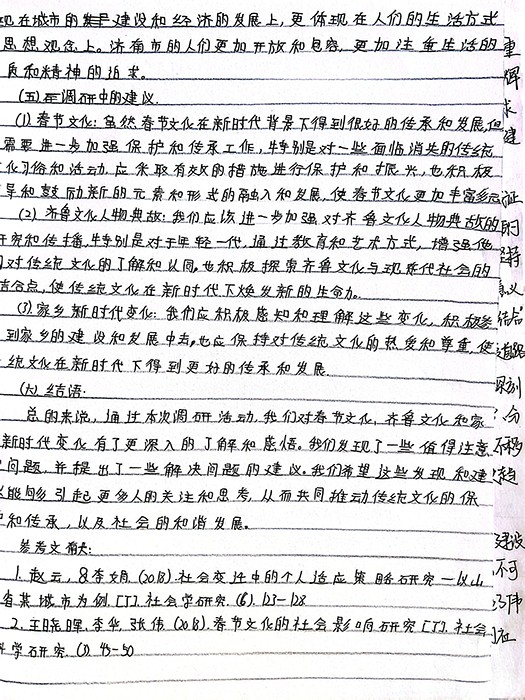 现在城市的建设和经济的发展上,更体现在人们的生活方式
思想观念上。济南市的人们更加开放和包容,更加注重生活的
质和精神的追求。
(五)调研中的建议
(1)春节文化:虽然春节文化在新时代背景下得到很好的传承和发展,但
需要进一步加强保护和传承工作,特别是对一些面临消失的传统
文化习俗和活动,应采取有效的措施进行保护和振兴,也积极
导和鼓励新的元素和形式的融入和发展,使春节文化更加丰富多元
(2)齐鲁文化人物典故:我们应该进一步加强对齐鲁文化人物典故的
研究和传播,特别是对于年轻一代,通过教育和艺术方式,增强他
们对传统文化的了解和认同,也积极探索齐鲁文化与现代社会的
结合点,使传统文化在新时代下焕发新的生命力。
(3)家乡新时代变化:我们应积极感知和理解这些变化,积极参
到家乡的建设和发展中去,也应保持对传统文化的热爱和尊重,使
统文化在新时代下得到更好的传承和发展.
(六)结语.
总的来说,通过本次调研活动,我们对春节文化,齐鲁文化和家
新时代变化有了更深入的了解和感悟。我们发现了一些值得注意
问题,并提出了一些解决问题的建议。我们希望这些发现和建
能够引起更多人的关注和思考,从而共同推动传统文化的保
和传承,以及社会的和谐发展。
参考文献:
1.赵云,&李娟.(2018).社会变迁中的个人适应策略研究—以山
省某城市为例.[J].社会学研究.(6).123-128
2.王晓晖,李华,张伟(2018).春节文化的社会影响研究[J].社会
科学研究.(3).45-50
重
求
建
证
的
坚持
意义
结合
道路
深刻
分
不移
建设
不可
伟
在